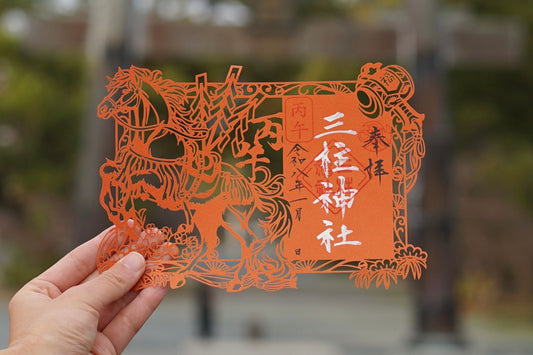 奉拝
三柱神社
丙午
令和八年一月 日
丙午